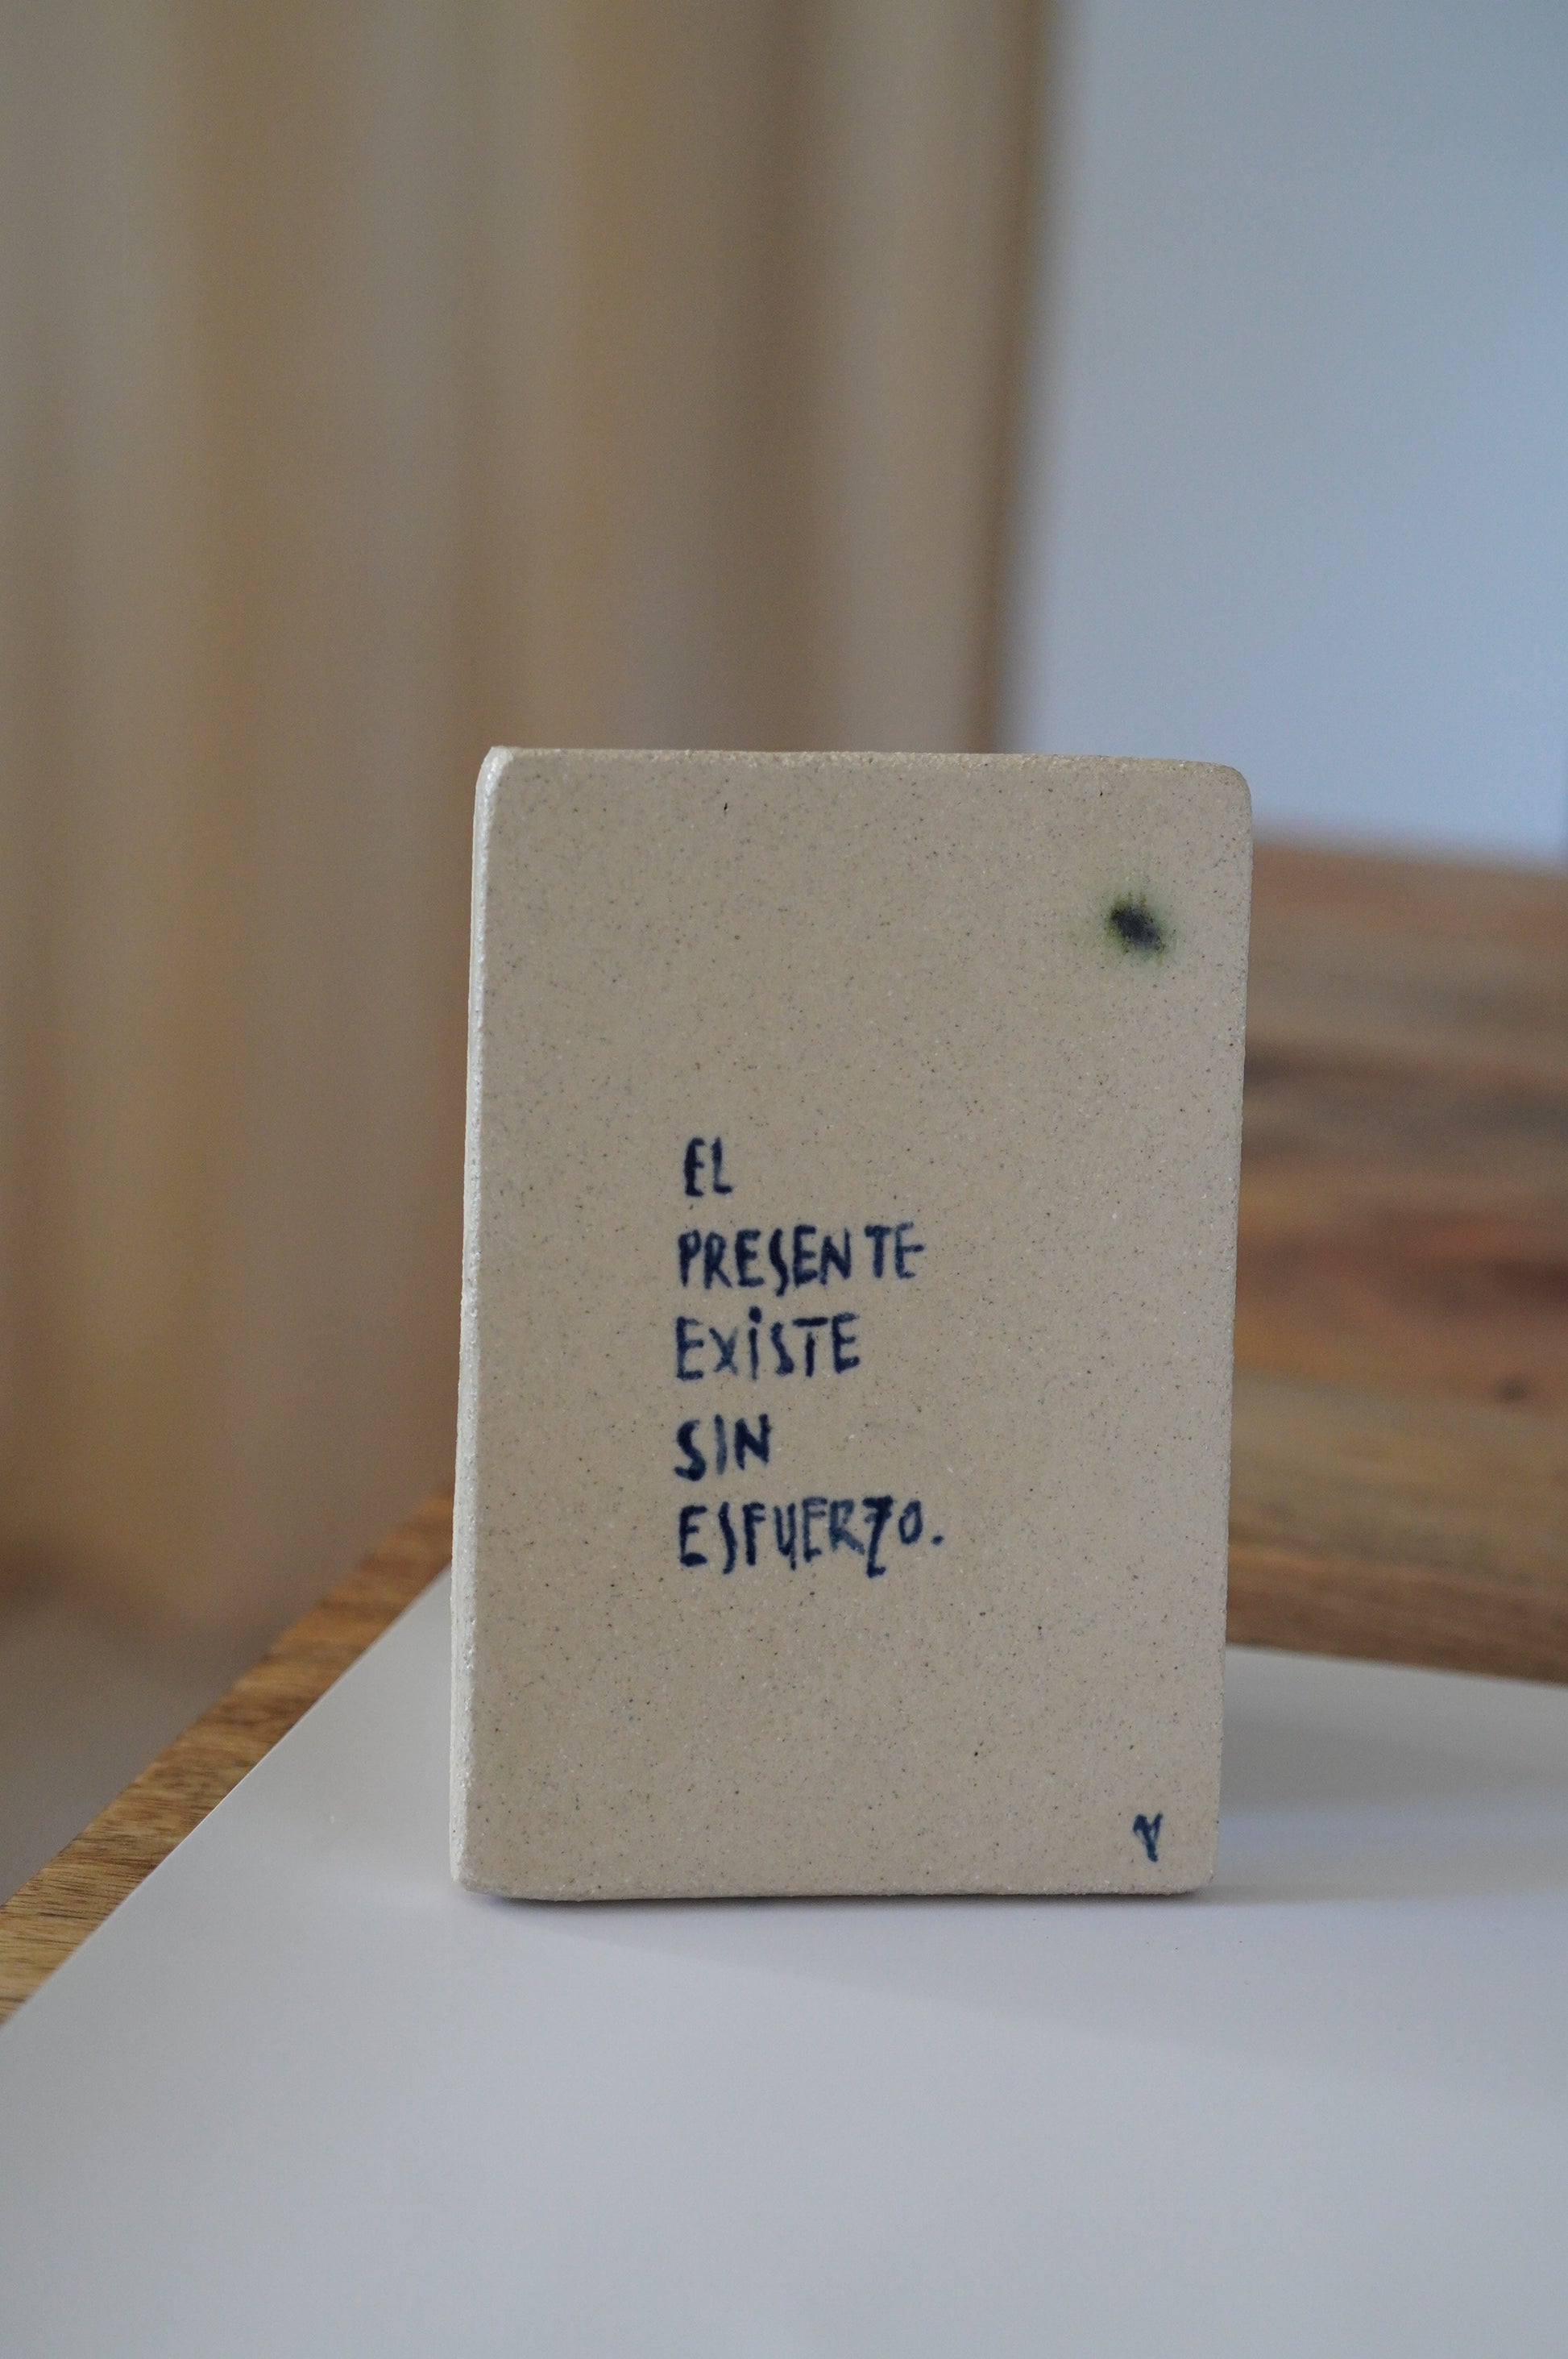 EL
PRESENTE
EXiSTE
SIN
ESFUERZO.
V